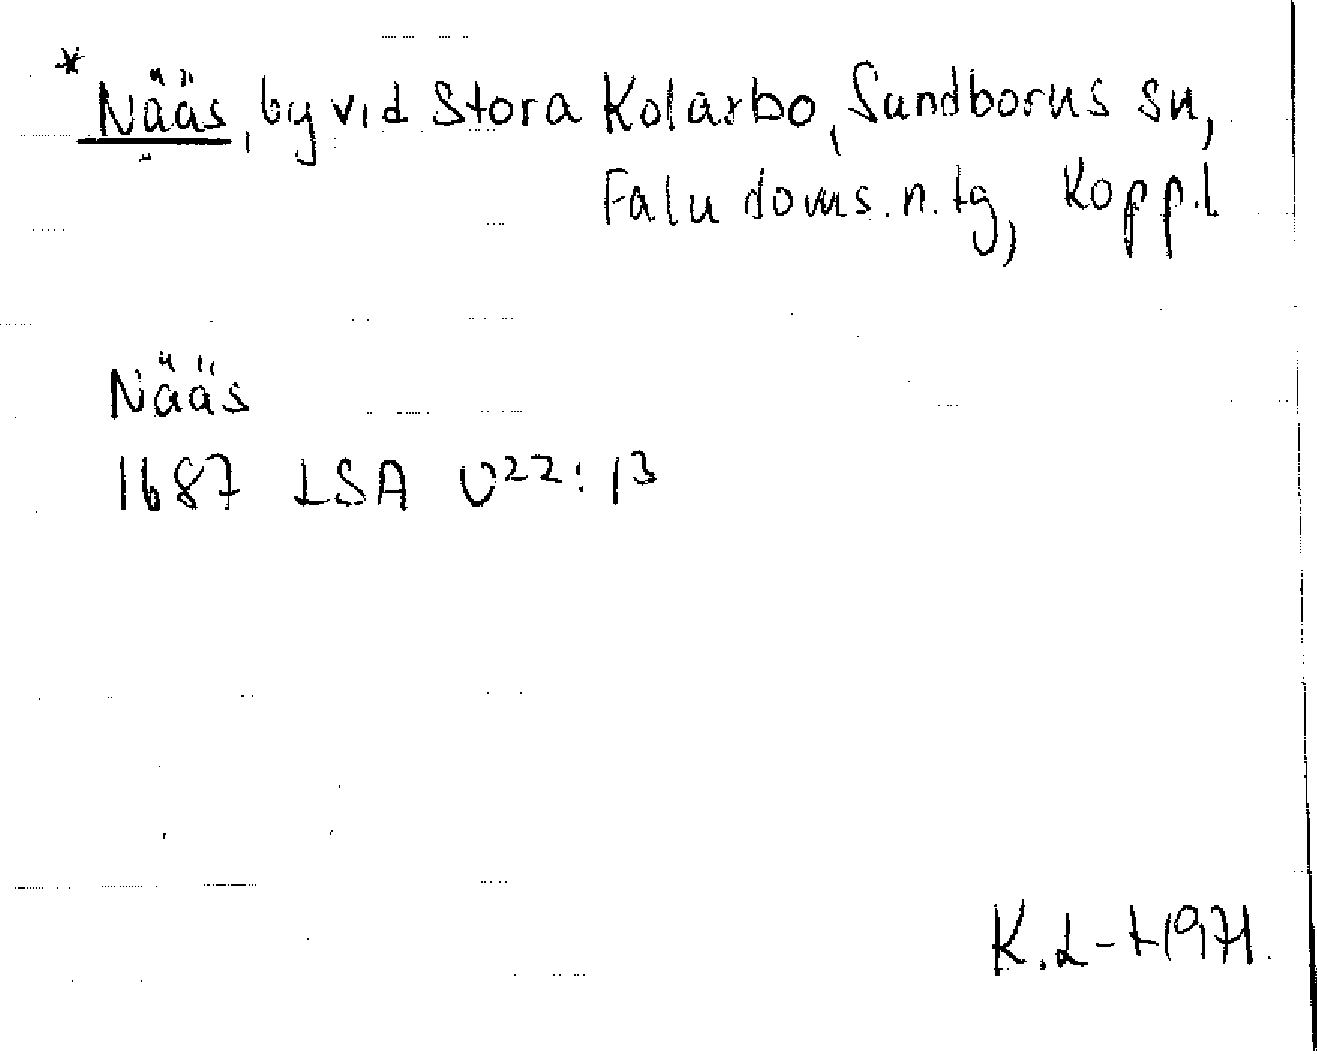 * Nääs, by vid Stora Kolarbo, Sundborns sn,
Falu doms.n.tg, Kopp.l
Nääs
1687 LSA U22:13
K.L-t 1971.